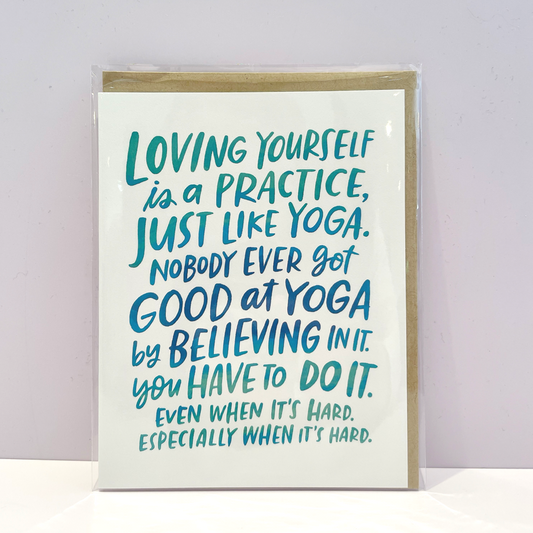 LOVING YOURSELF
is a PRACTICE,
JUST LIKE YOGA.
NOBODY EVER got
GOOD at YOGA
by BELIEVING IN IT.
you HAVE TO DO IT.
EVEN WHEN IT'S HARD.
ESPECIALLY WHEN IT'S HARD.